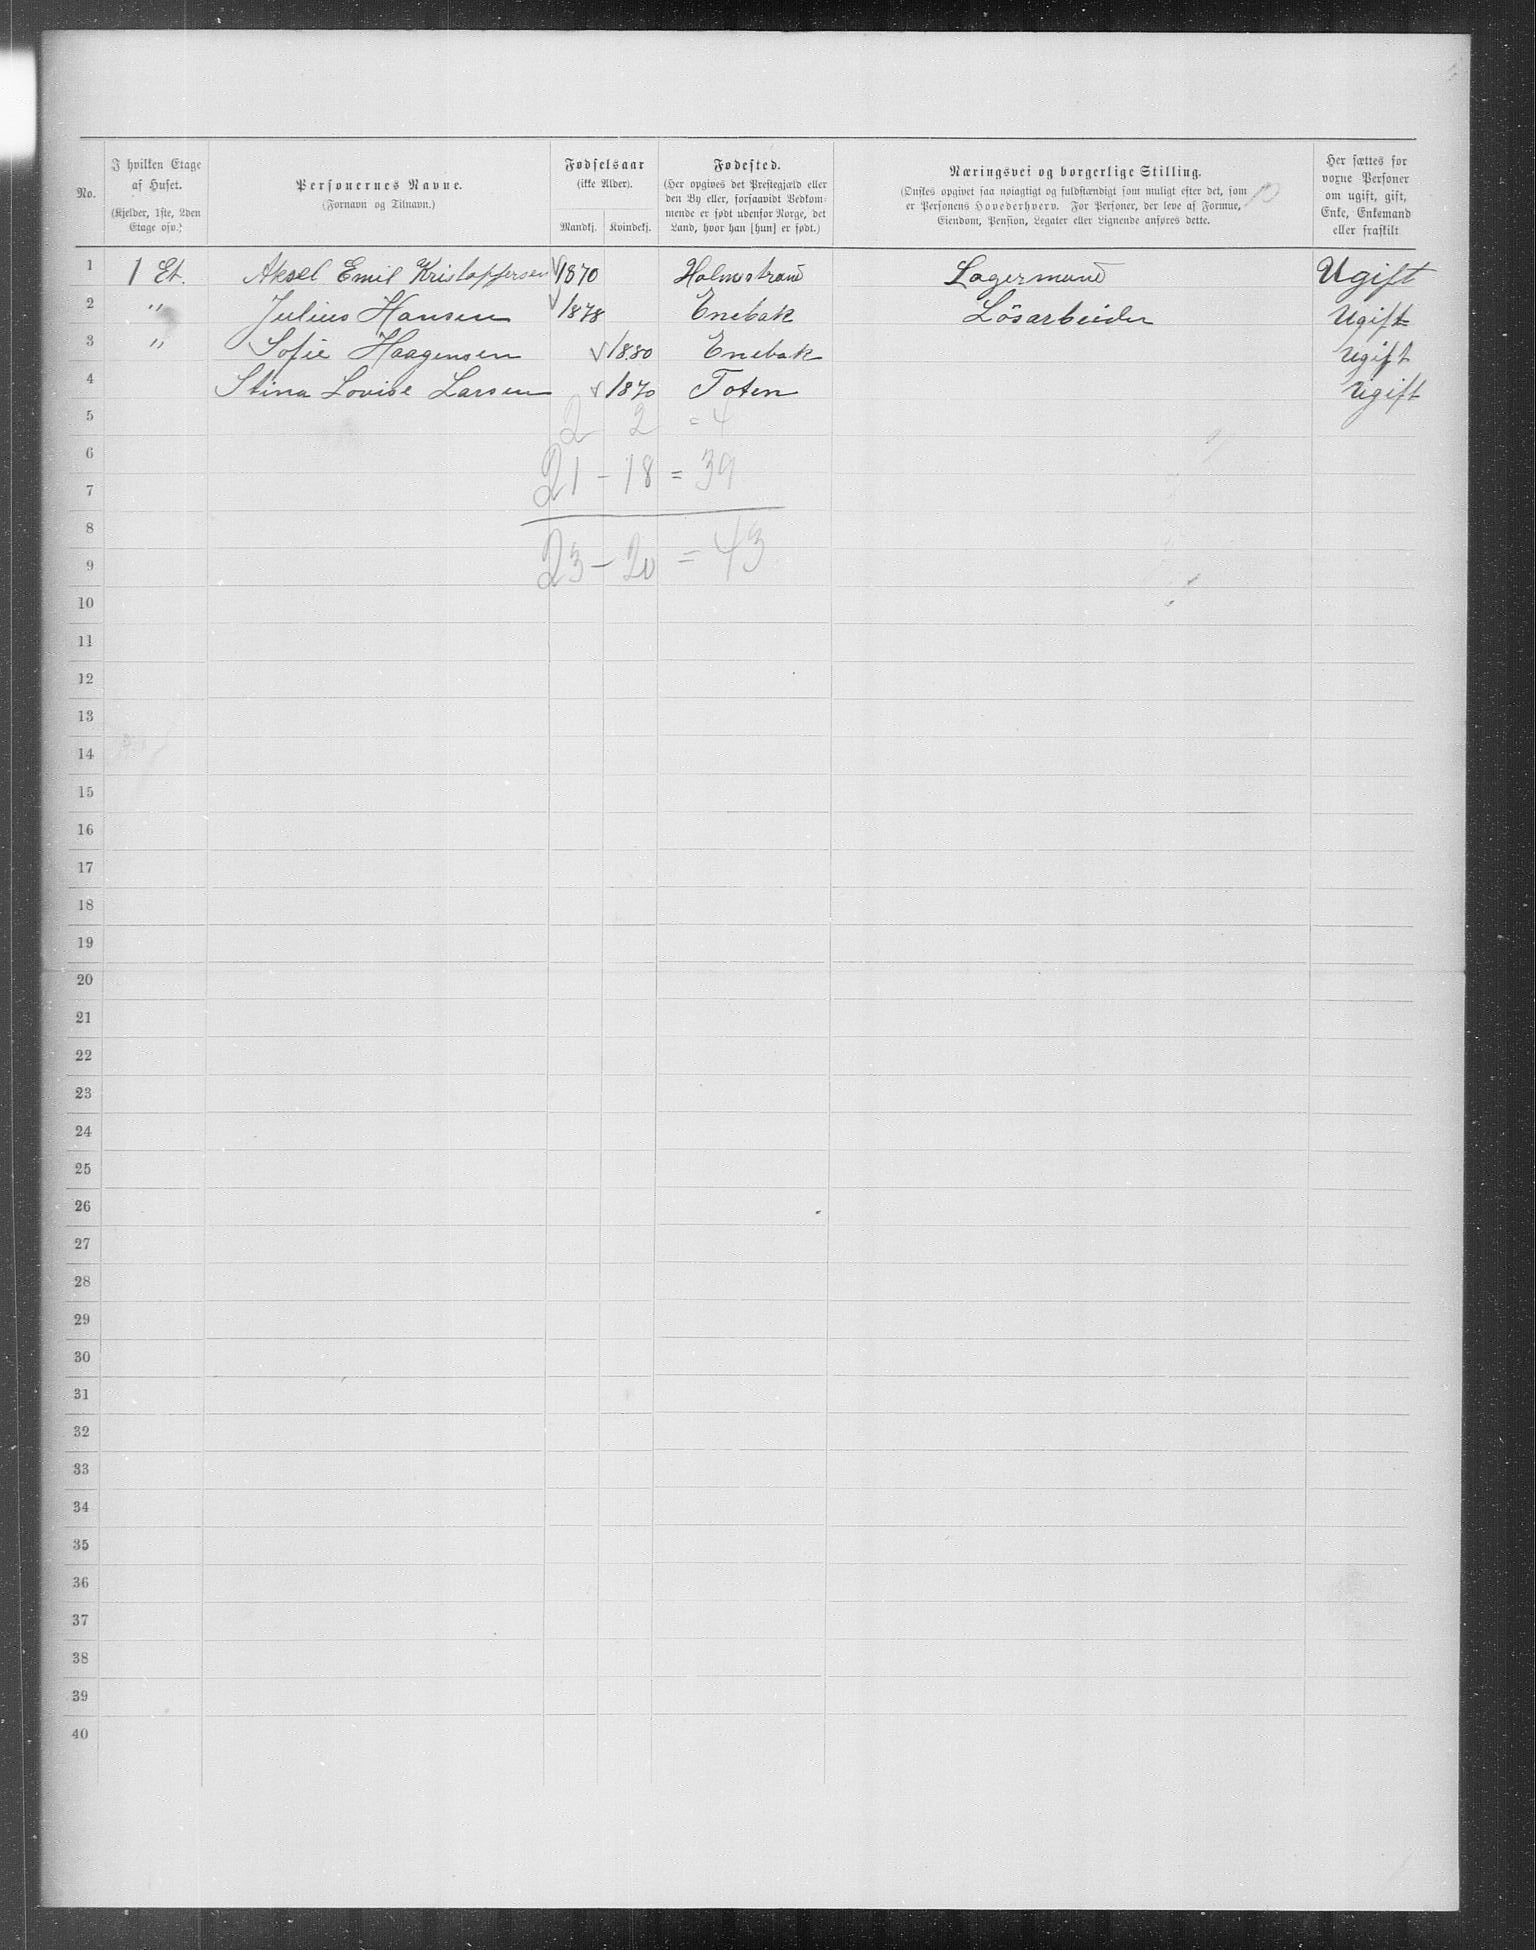 No.
I hvilken Etage
af Huset.
(Kjelder, 1ste, 2den
Etage osv.)
Personernes Navne.
(Fornavn og Tilnavn.)
Fødselsaar
(ikke Alder).
Mandkj. Kvindekj.
Fødested.
(Her opgives det Prestegjæld eller
den By eller, forsaavidt Vedkom-
mende er født udenfor Norge, det
Land, hvor han [hun] er født.)
Næringsvei og borgerlige Stilling.
(Ønskes opgivet saa nøiagtigt og fuldstændigt som muligt efter det, som
er Personens Hovederhverv. For Personer, der leve af Formue,
Eiendom, Pension, Legater eller Lignende anføres dette.
Her sættes for
voxne Personer
om ugift, gift,
Enke, Enkemand
eller fraskilt
1 1 Et. Aksel Emil Kristoffersen 1870 Holmstrand Lagermand Ugift
2 " Julius Hansen 1878 Enebak Lösarbeider Ugift
3 " Sofie Haagensen 1880 Enebak Ugift
4 Stina Lovise Larsen 1870 Toten Ugift
5 2 2 = 4
6
7 21 - 18 = 39
8
9 23 - 20 = 43
10
11
12
13
14
15
16
17
18
19
20
21
22
23
24
25
26
27
28
29
30
31
32
33
34
35
36
37
38
39
40